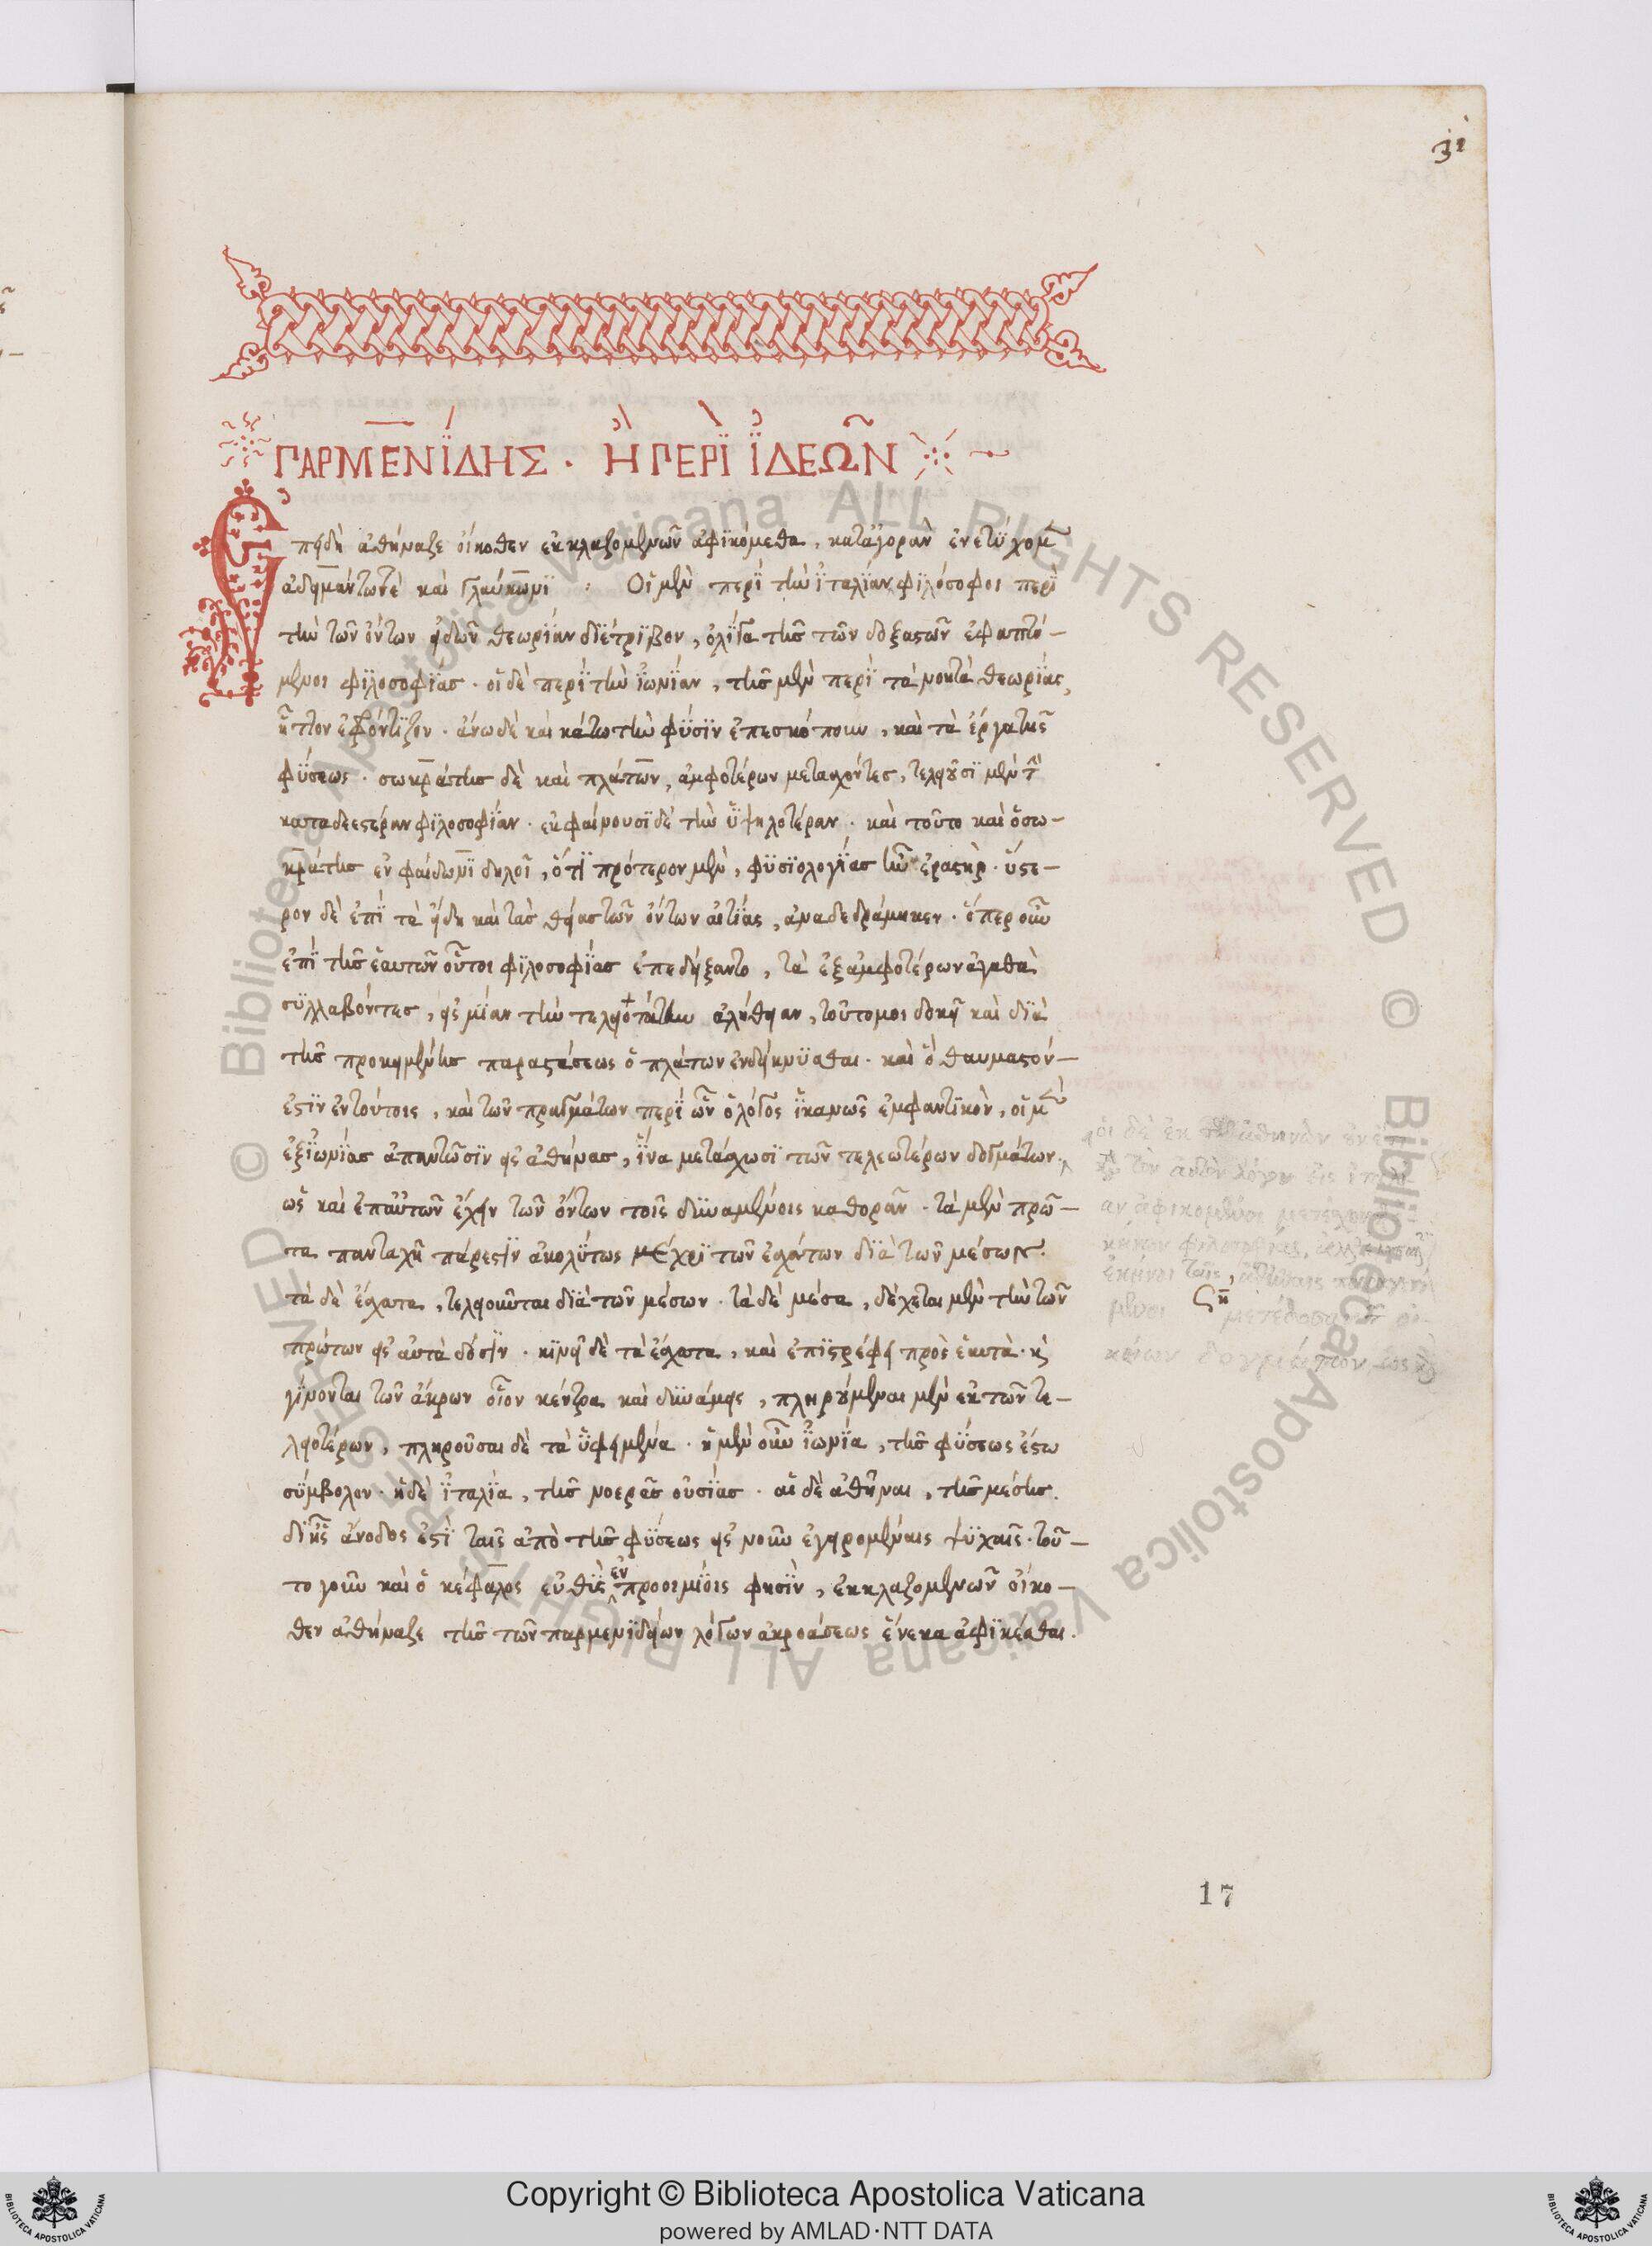 31
ΠΑΡΜΕΝΊΔΗΣ · Ἢ ΠΕΡῚ ἸΔΕΩ͂Ν
Ἐπειδὴ ἀθήναζε οἴκοθεν ἐκ κλαζομενῶν ἀφϊκόμεθα, κατἀγορὰν ἐνετύχομεν
ἀδημάντωτὲ καὶ Γλαύκωνϊ : Οἱ μὲν περὶ τὴν ἰταλίαν φϊλόσοφοι περὶ
τὴν τῶν ὄντων εἰδῶν θεωρίαν διέτριβον, ὀλίγα τῆς τῶν δοξαστῶν ἐφαπτό-
μενοι φϊλοσοφίας · οἱ δὲ περὶ τὴν ἰωνίαν, τῆς μὲν περὶ τὰ νοητὰ θεωρίας,
ἧττον ἐφρόντιζον · ἄνω δὲ καὶ κάτω τὴν φύσιν ἐπεσκόπουν, καὶ τὰ ἔργα τῆς
φύσεως · σωκράτης δὲ καὶ πλάτων, ἀμφοτέρων μετασχόντες, τελειοῦσϊ μὲν τὴν
καταδεεστέραν φϊλοσοφίαν · ἐκφαίνουσϊ δὲ τὴν ὑψηλοτέραν · καὶ τοῦτο καὶ ὁ σω-
κράτης ἐν φαίδωνϊ δηλοῖ, ὅτϊ πρότερον μὲν, φυσϊολογίας ἦν ἐραστὴς · ὕστε-
ρον δὲ ἐπὶ τὰ εἴδη καὶ τὰς θείας τῶν ὄντων αἰτίας, ἀναδεδράμηκεν · ὅπερ οὖν
ἐπὶ τῆς ἑαυτῶν οὗτοι φϊλοσοφίας ἐπεδείξαντο, τὰ ἐξἀμφοτέρων ἀγαθὰ
συλλαβόντες, εἰς μίαν τὴν τελειοτάτην ἀλήθειαν, τοῦτο μοι δοκεῖ καὶ διὰ
τῆς προκειμένης παραστάσεως ὁ πλάτων ἐνδείκνυσθαι · καὶ ὃ θαυμαστόν-
ἐστϊν ἐν τούτοις, καὶ τῶν πραγμάτων περὶ ὧν ὁ λόγος ἱκανῶς ἐμφαντικὸν, οἱ μὲν
ἐξ ἰωνίας ἀπαντῶσϊν εἰς ἀθήνας, ἵνα μετάσχωσϊ τῶν τελεωτέρων δογμάτων.
ὡς καὶ ἐπαὐτῶν ἔχειν τῶν ὄντων τοῖς δυναμένοις καθορᾶν · τὰ μὲν πρῶ-
τα πανταχῆ πάρεστϊν ἀκολύτως μέχρϊ τῶν ἐσχάτων διὰ τῶν μέσων.
τὰ δὲ ἔσχατα, τελειοῦται διὰ τῶν μέσων · τὰ δὲ μέσα, δέχεται μὲν τὴν τῶν
πρώτων εἰς αὐτὰ δόσϊν · κϊνεῖ δὲ τὰ ἔσχατα, καὶ ἐπϊστρέφει πρὸς ἑαυτὰ · καὶ
γίνονται τῶν ἄκρων οἷον κέντρα καὶ δυνάμεις, πληρούμεναι μὲν ἐκ τῶν τε-
λειοτέρων, πληροῦσαι δὲ τὰ ὑφειμένα · ἡ μὲν οὖν ἰωνία, τῆς φύσεως ἔστω
σύμβολον · ἡ δὲ ἰταλία, τῆς νοερᾶς οὐσίας · αἱ δὲ ἀθῆναι, τῆς μέσης.
δϊ ἧς ἄνοδος ἐστὶ ταῖς ἀπὸ τῆς φύσεως εἰς νοῦν ἐγειρομέναις ψυχαῖς · τοῦ-
το γοῦν καὶ ὁ κέφαλος εὐθὺς ἐν προοιμίοις φησϊν, ἐκ κλαζομενῶν οἴκο-
θεν ἀθήναζε τῆς τῶν παρμενιδείων λόγων ἀκροάσεως ἕνεκα ἀφϊκέσθαι.
17
© Biblioteca Apostolica Vaticana ALL RIGHTS RESERVED
Copyright © Biblioteca Apostolica Vaticana
powered by AMLAD·NTT DATA